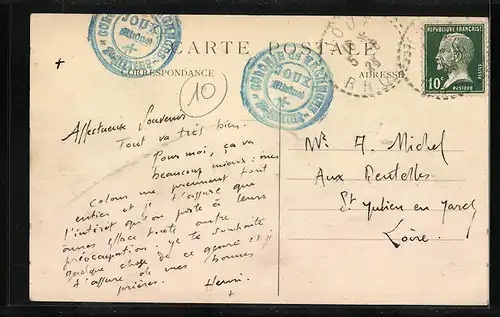 CARTE POSTALE
CORRESPONDANCE
ADRESSE
JOUX
(Rhône)
JOUX
(Rhône)
10c
POSTES
PASTEUR
RHÔNE
10
Affectueux Souvenir
Tout va très bien.
Pour moi, ça va
beaucoup mieux : mes
Colons me prennent tout
entier et je t'assure que
l'intérêt qu'on porte à leurs
âmes efface toute autre
préoccupation. Je te souhaite
quelque chose de ce genre et
t'assure de mes bonnes
prières. Henri.
Mr A. Michel
Aux Bentelles
St Julien en Jarez
Loire.